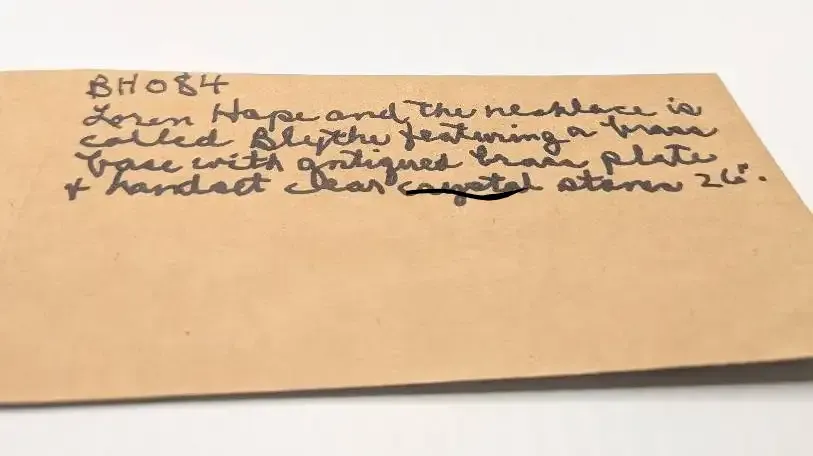 BH084
Loren Hope and the necklace is
called Blythe featuring a brass
base with antiqued brass plate
+ handset clear crystal stones 26".